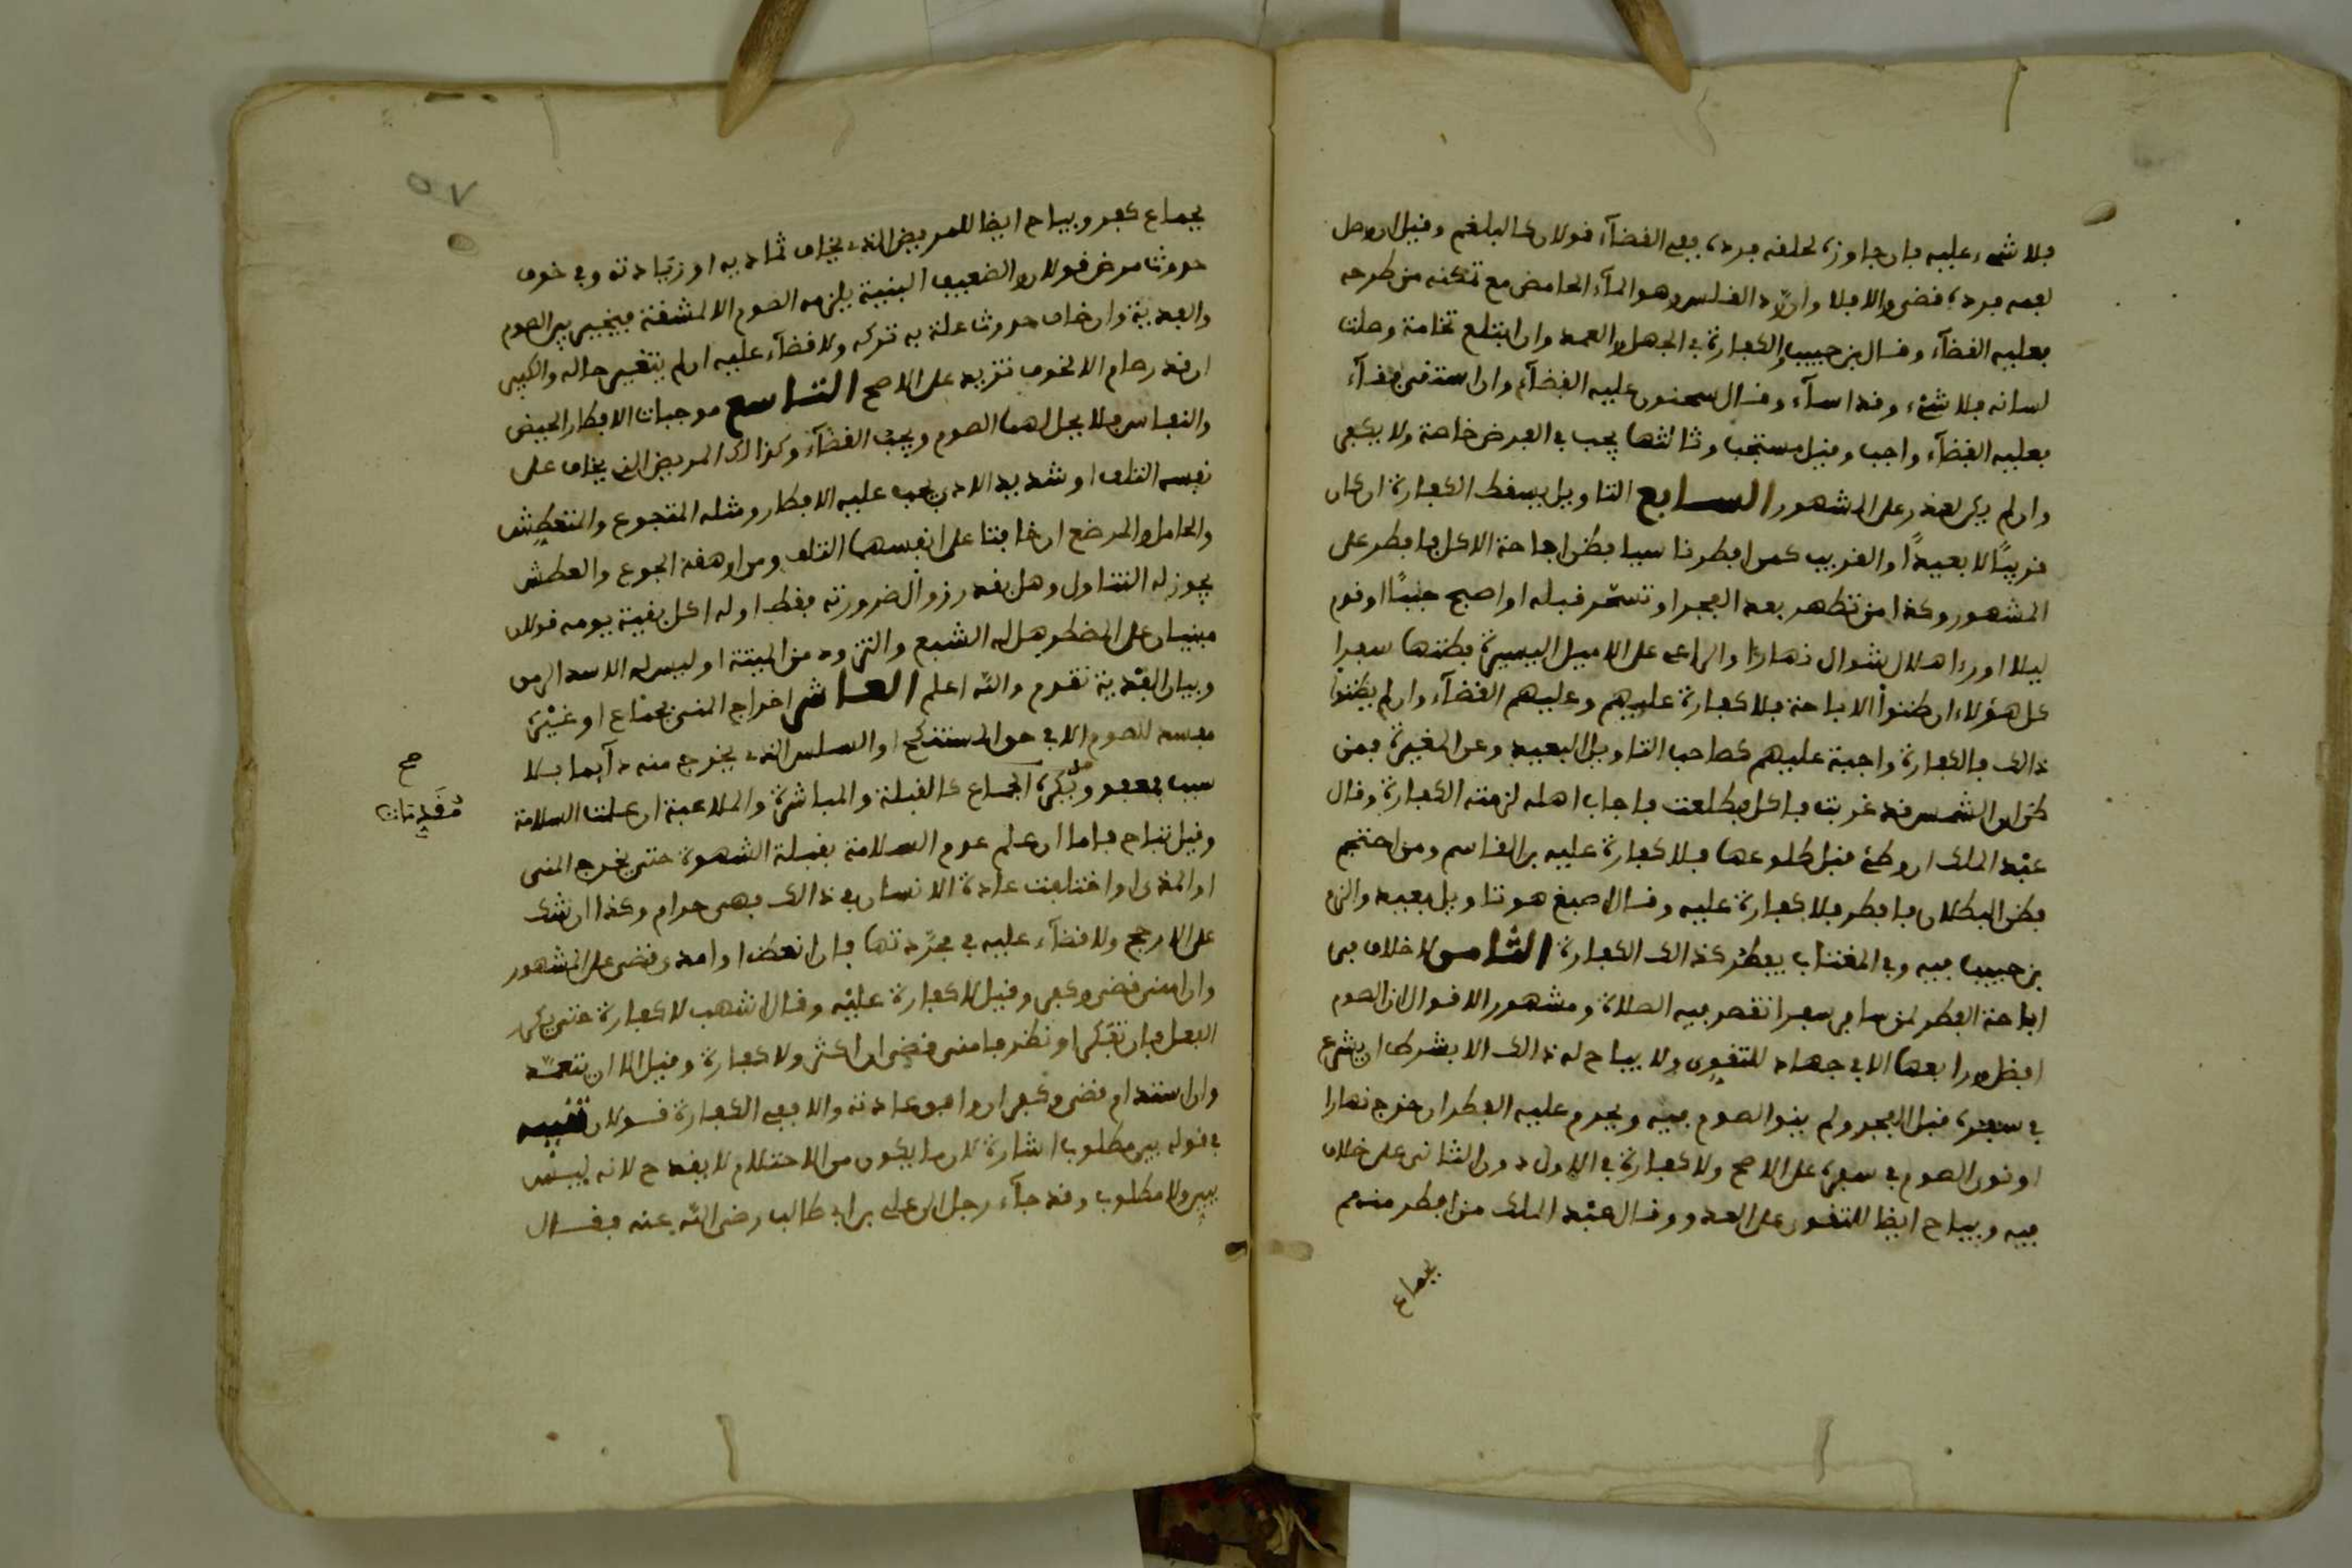 فلا شيء عليه فإن جاوزة لحلقه فرده ففي القضآء قولان كالبلغم وقيل ان وصل
لفمه فرده قضى والا فلا وان رد القلس وهو المآء الحامض مع تمكنه من طرحه
فعليه القضآء وقال بن حبيب والكفارة في الجهل والعمد وان ابتلع نخامة وصلت
لسانه فلا شيء وقد اسآء وقال سحنون عليه القضآء وان استقى فقآء
فعليه القضآء واجب وقيل مستحب وثالثها يجب في الفرض خاصة ولا يكفي
وان لم يكن لعذر على المشهور السابع التاويل يسقط الكفارة ان كان
قريبًا لا بعيدًا والقريب كمن افطر ناسيا فظن اباحة الاكل فافطر على
المشهور وكذا من تطهر بعد الفجر او تسحر قبله او اصبح جنبًا او قدم
ليلا او رءا هلال شوال نهارًا والراعي على الاميل اليسيرة فظنها سفرا
كل هؤلاء ان ظنوا الاباحة فلا كفارة عليهم وعليهم القضآء وان لم يظنوا
ذالك فالكفارة واجبة عليهم كصاحب التاويل البعيد وعن المغيرة فمن
ظن ان الشمس قد غربت فاكل فطلعت فاجاب اهله لزمته الكفارة وقال
عبد الملك ان وطئ قبل طلوعها فلا كفارة عليه بن القاسم ومن احتجم
فظن البطلان فافطر فلا كفارة عليه وقال اصبغ هو تاويل بعيد والزم
بن حبيب فيه وفي المغتاب يفطر كذالك الكفارة الثامن لا خلاف في
اباحة الفطر لمن سافر سفرا تقصر فيه الصلاة ومشهور الاقوال ان الصوم
افضل ورابعها الا في جهاد للتقوي ولا يباح له ذالك الا بشرط ان يشرع
في سفره قبل الفجر ولم ينو الصوم فيه ويحرم عليه الفطر ان خرج نهارا
او نوى الصوم في سفره على الاصح ولا كفارة في الاول دون الثاني على خلاف
فيه ويباح ايضا للتقوى على العدو وقال عبد الملك من افطر منهم
بجماع
٥٧
بجماع كفر ويباح ايضا للمريض الذي يخاف تماديه او زيادته وفي خوف
حدوث مرض قولان والضعيف البنية يلزمه الصوم الا لمشقة فيخير بين الصوم
والفدية وان خاف حدوث علة به تركه ولا قضآء عليه ان لم يتغير حاله والكبير
ان قدر صام الا لخوف تزيد على الاصح التاسع موجبات الافطار الحيض
والنفاس فلا يحل لهما الصوم ويجب القضآء وكذالك المريض الذي يخاف على
نفسه التلف او شديد الاذى يجب عليه الافطار ومثله المتجوع والمتعطش
والحامل والمرضع ان خافتا على انفسهما التلف ومن ارهقه الجوع والعطش
يجوز له التناول وهل بقدر زوال ضرورته فقط او له اكل بقية يومه قولان
مبنيان على المضطر هل له الشبع والتزود من الميتة او ليس له الا سد الرمق
وبيان الفدية تقدم والله اعلم العاشر اخراج المنى بجماع او غيره
مفسد للصوم الا في حق المستنكح او السلس الذي يخرج منه دآيما بلا
سبب فعفو وتكره الجماع كالقبلة والمباشرة والملاعبة ان علمت السلامة
صح
مقدمات
وقيل تباح فاما ان علم عدم السلامة بغلبة الشهوة حتى يخرج المنى
او المذى او اختلفت عادة الانسان في ذالك فهى حرام وكذا ان شك
على الارجح ولا قضآء عليه في مجردتها فإن انعظ او امذى قضى على المشهور
وان امنى قضى وكفر وقيل لا كفارة عليه وقال اشهب لا كفارة حتى يكرر
الفعل فإن تفكر او نظر فامنى قضى ان اكثر ولا كفارة وقيل الا ان يتعمد
وان استدام قضى وكفر ان وافق عادته والا ففي الكفارة قولان تنبيه
في قوله بير مطلوب اشارة لان ما يكون من الاحتلام لا يقدح لانه ليس
بير ولا مطلوب وقد جآء رجل الى على بن ابي طالب رضي الله عنه فقال